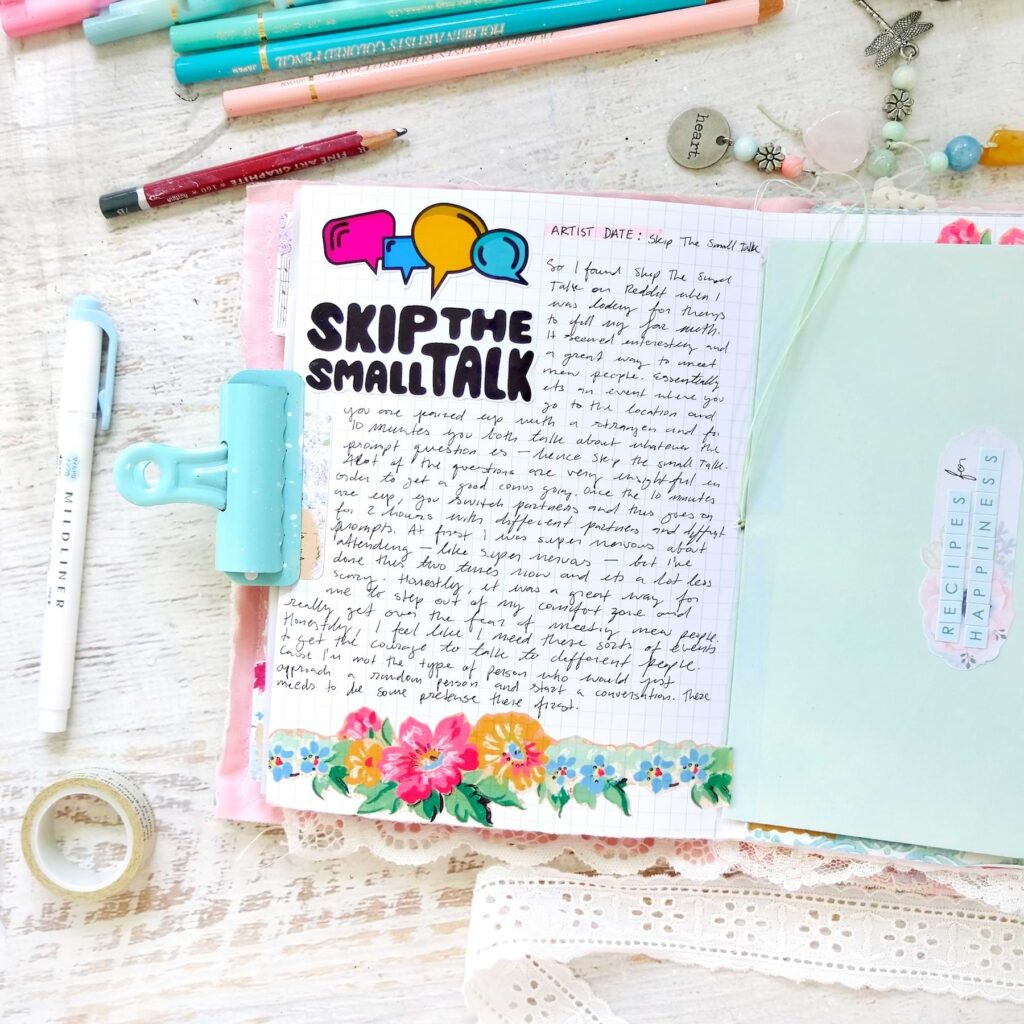 HOLBEIN ARTISTS' COLORED PENCIL
JAPAN
FINE ART GRAPHITE • 160 •
7B
heart.
MILDLINER
SKIP THE
SMALL TALK
ARTIST DATE: Skip The Small Talk
So I found Skip The Small
Talk on Reddit when I
was looking for things
to fill my for with.
It seemed interesting and
a great way to meet
new people. Essentially
its an event where you
go to the location and
you are paired up with a stranger and for
10 minutes you both talk about whatever the
prompt question is — hence Skip the Small Talk.
Alot of the questions are very insightful in
order to get a good convo going. Once the 10 minutes
are up, you switch partners and this goes on
for 2 hours with different partners and diffrnt
prompts. At first I was super nervous about
attending — like super nervous — but I've
done this two times now and its a lot less
scary. Honestly, it was a great way for
me to step out of my comfort zone and
really get over the fear of meeting new people.
Honestly, I feel like I need these sorts of events
to get the courage to talk to different people
cause I'm not the type of person who would just
approach a random person and start a conversation. There
needs to be some pretense there first.
RECIPES for
HAPPINESS